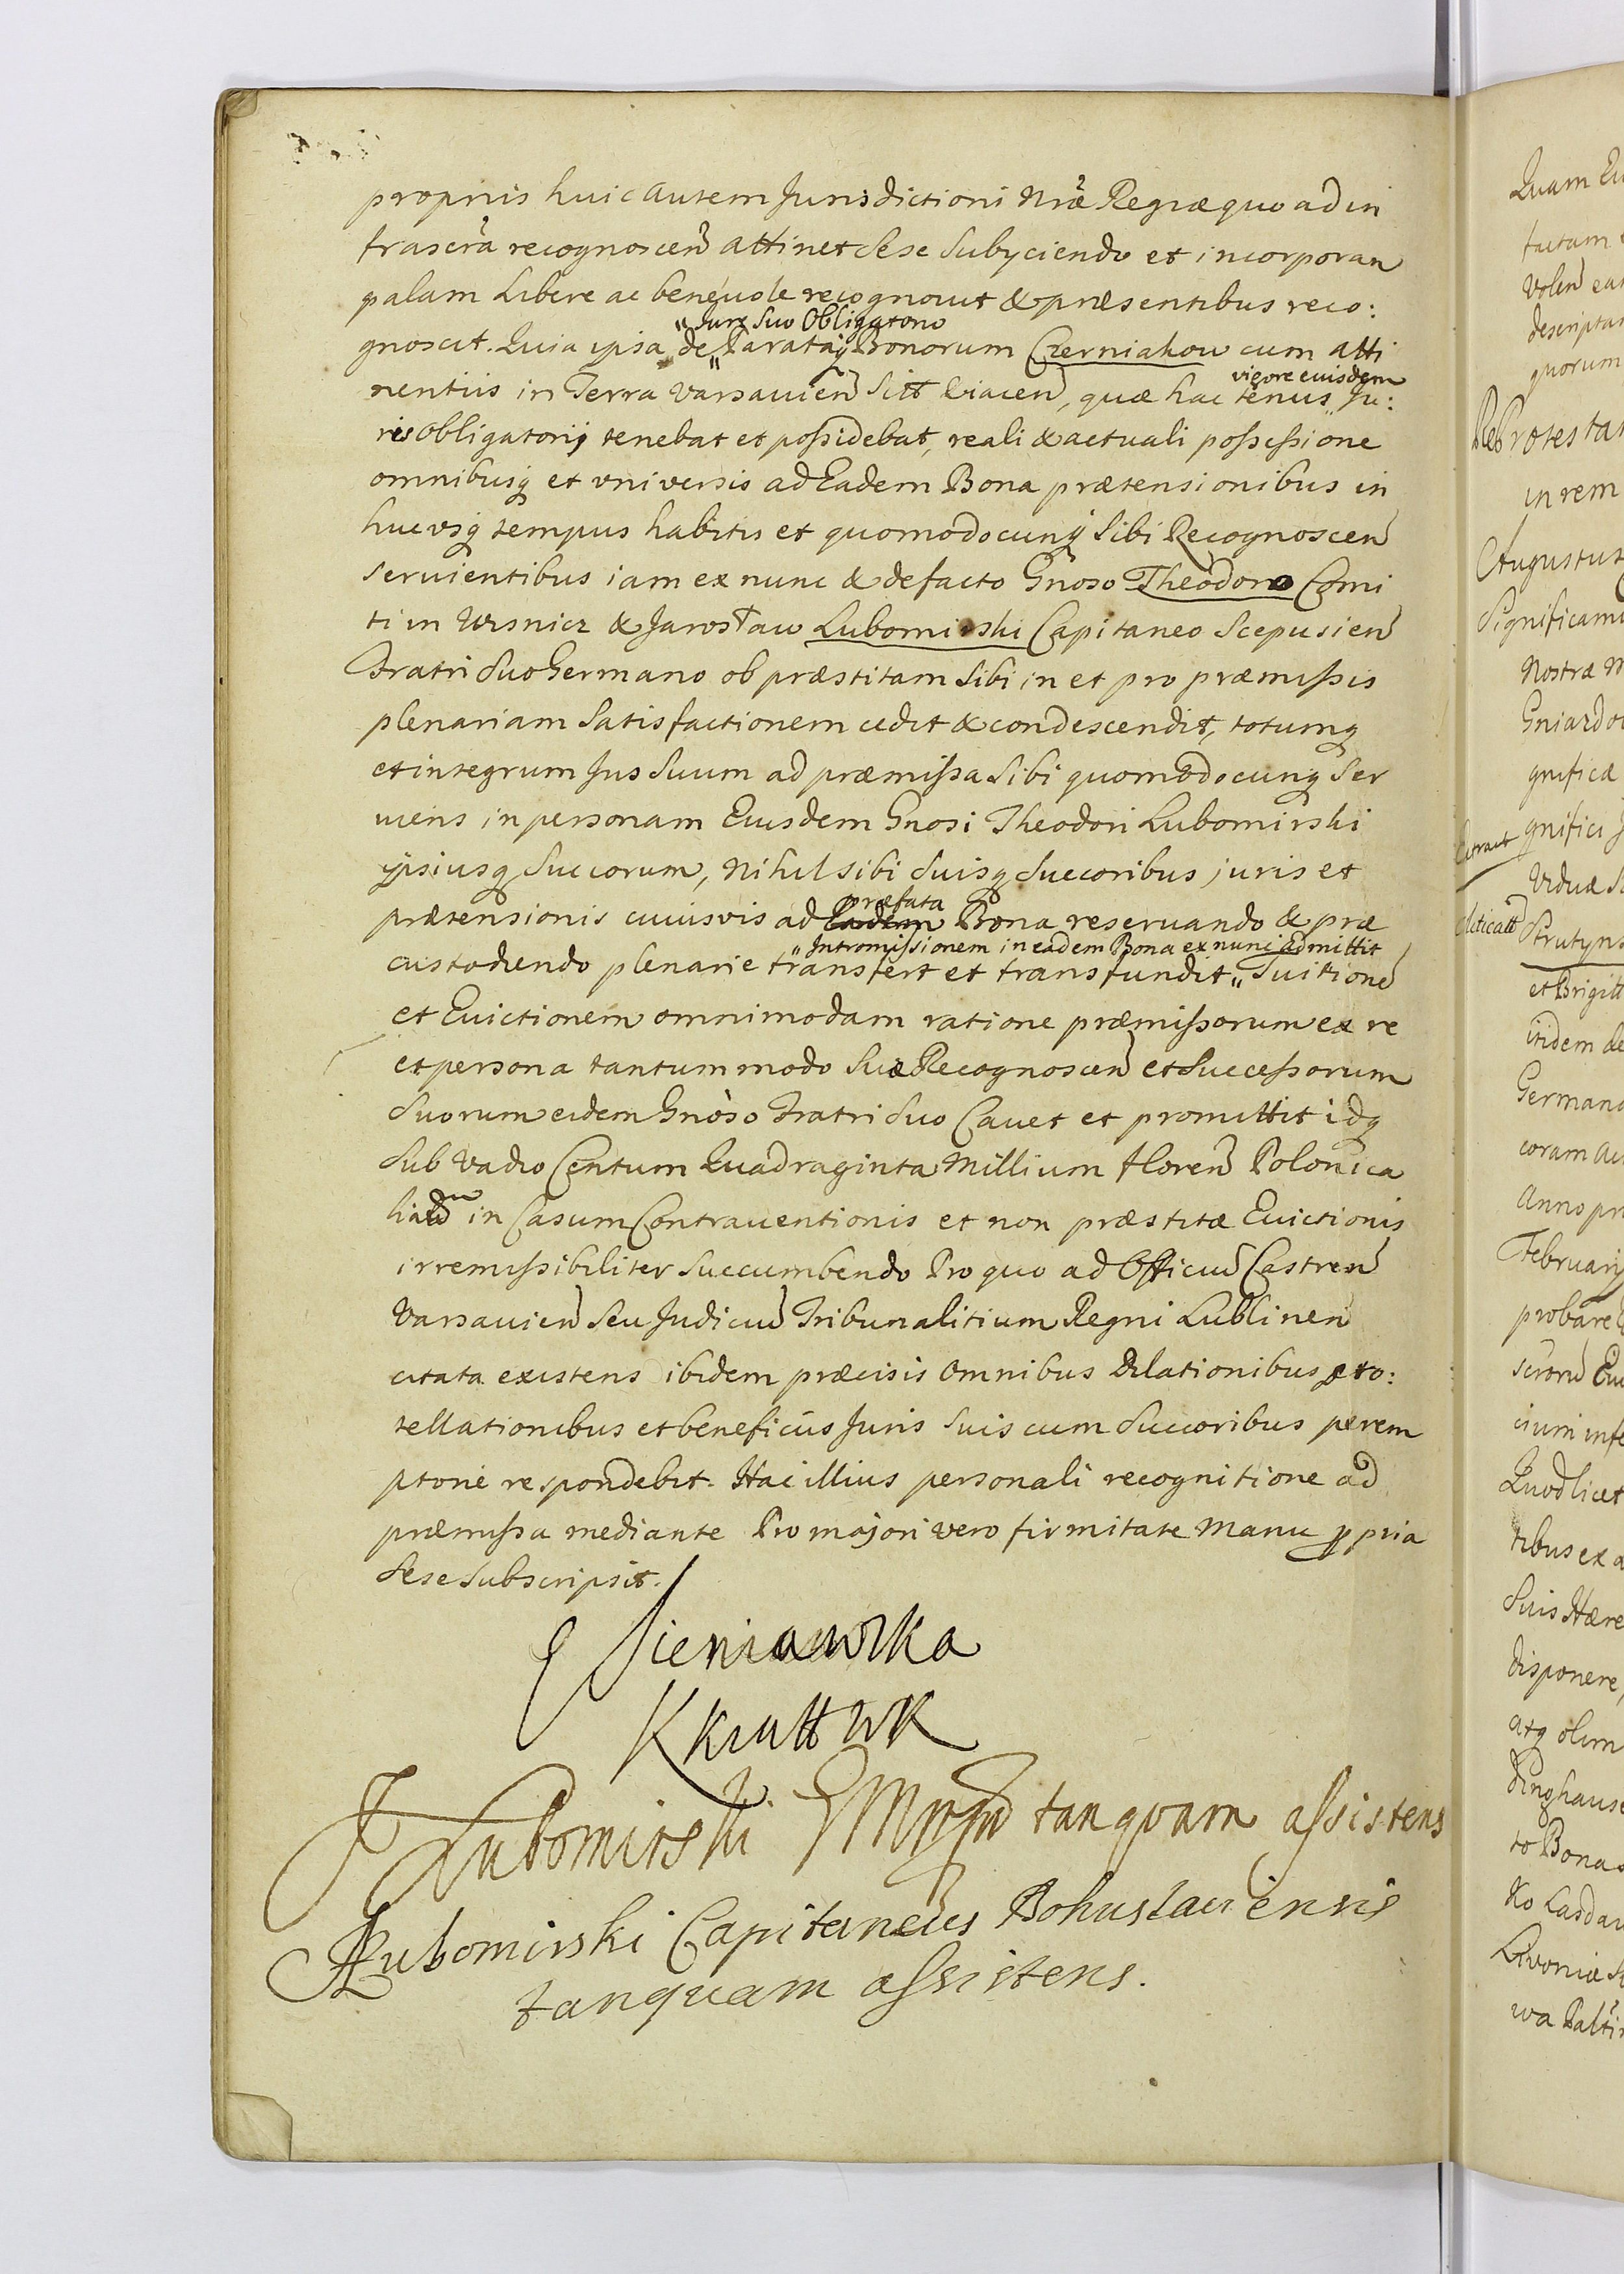 proprijs huic autem Jurisdictioni Nræ Regiæ quo ad in
frascrã recognoscen attinet sese subyciendo et incorporan
palam Libere ac beneuole recognouit & præsentibus reco:
" Jure suo Obligatorio
gnoscit. Quia ipsa de " Bonorum Czerniakow cum atti
vigore euisdem
nentiis in Terra Varsavien sitt &iacen, quæ hac tenus " Ju:
ris obligatorij tenebat et possidebat, reali & actuali possessione
omnibusq et vniversis ad Eadem Bona prætensionibus in
huc vsq tempus habitis et quomodocunq sibi Recognoscen
seruientibus iam ex nunc & defacto Gnoso Theodoro Comi
ti in Wisnicz & Jarosław Lubomirski Capitaneo Scepusien
Fratri suo Germano ob præstitam sibi in et pro præmissis
plenariam satisfactionem cedit & condescendit, totumq
et integrum Jus suum ad præmissa sibi quomodocunq ser
uiens in personam Eiusdem Gnosi Theodori Lubomirski
ipsiusq succorum, Nihil sibi suisq succoribus juris et
præfata
prætensionis cuiusvis ad Eadem Bona reseruando & præ
" Intromissionem in eadem Bona ex nunc admittit
custodiendo plenarie transfert et transfundit " Tuitione
et Euictionem omnimodam ratione præmissorum ex re
et persona tantummodo suæ Recognoscen et Successorum
suorum eidem Gnoso Fratri suo Cauet et promittit idq
sub Vadio Centum Quadraginta Millium floren Polonica
lium in Casum Contrauentionis et non præstitæ Euictionis
irremissibiliter succumbendo Pro quo ad Officiu Castren
Varsauien seu Judiciu Tribunalitium Regni Lublinen
citata existens ibidem præcisis omnibus Dilationibus
tellationibus et beneficiis Juris suis cum succoribus perem
ptorie respondebit. Hac illius personali recognitione ad
præmissa mediante Pro majori vero firmitate manu ppria
sese subscripsit.
E Sieniawska
J Lubomirski tanquam assistens
Lubomirski Capitaneus Bohuslauiensis
tanquam assistens.
Quam
factam
Volen
descriptam
quorum
in rem
Augustus
Significamus
Nostræ
gnificæ
gnifici
Extract
Viduæ
et Brigitt
itidem de
Germana
coram
Anno
Februarij
probare
Quod licet
tibus ex
Suis Hære
disponere,
atq olim
to Bona
Livoniæ